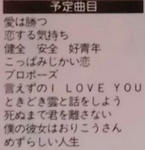 予定曲目
愛は勝つ
恋する気持ち
健全　安全　好青年
こっぱみじかい恋
プロポーズ
言えずのI LOVE YOU
ときどき雲と話をしよう
死ぬまで君を離さない
僕の彼女はおりこうさん
めずらしい人生